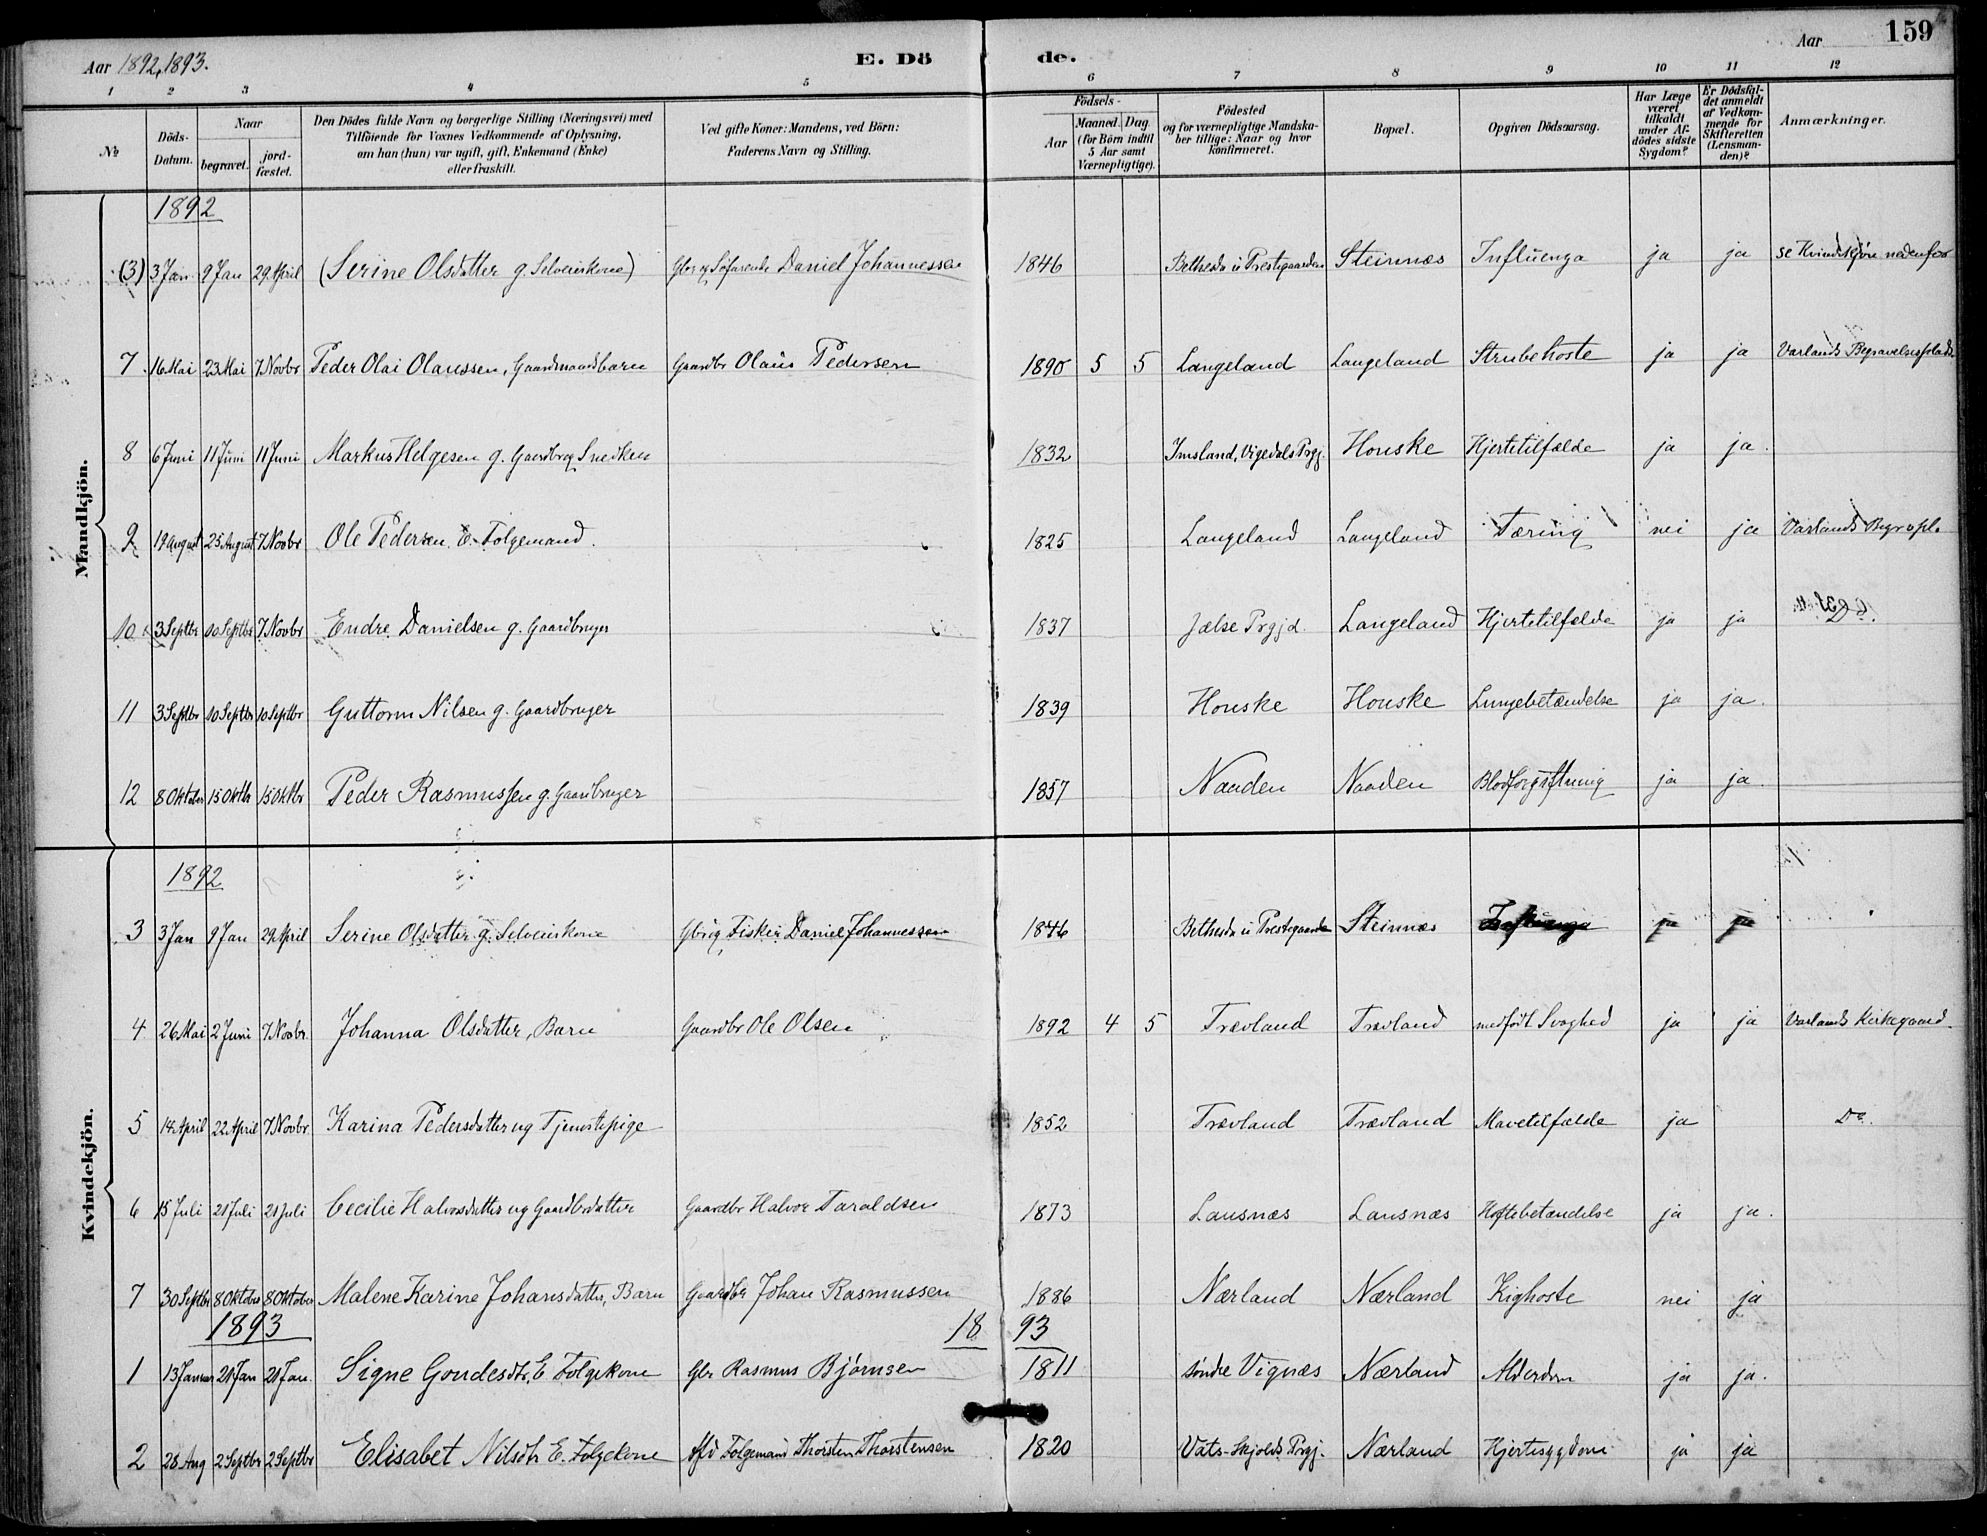 159
Aar 1892, 1893.
E. Dö
de.
Aar
1 2 3 4 5 6 7 8 9 10 11 12
№
Döds-
Datum.
Naar
begravet.
jord-
fæstet.
Den Dödes fulde Navn og borgerlige Stilling (Næringsvei) med
Tilföiende for Voxnes Vedkommende af Oplysning,
om han (hun) var ugift, gift, Enkemand (Enke)
eller fraskilt.
Ved gifte Koner: Mandens, ved Börn:
Faderens Navn og Stilling.
Födsels-
Aar
Maaned.
Dag
(for Börn indtil
5 Aar samt
Værnepligtige).
Födested
og for værnepligtige Mandska-
ber tillige: Naar og hvor
konfirmeret.
Bopæl.
Opgiven Dödsaarsag.
Har Læge
været
tilkaldt
under Af-
dödes sidste
Sygdom?
Er Dödsfal-
det anmeldt
af Vedkom-
mende for
Skifteretten
(Lensman-
den)?
Anmærkninger.
Mandkjön.
1892
(3) 3 Jan 9 Jan 29 April (Serine Olsdatter g. Selveierkone) Gbr og Søfarende Daniel Johannessen 1846 Bethesda u Prestegaarden Steinnæs Influenza ja ja se Kvindekjøn nedenfor
7 16 Mai 23 Mai 7 Novbr Peder Olai Olaussen, Gaardmandsbarn Gaardbr Olaus Pedersen 1890 5 5 Langeland Langeland Strubehoste ja ja Varlands Begravelsesplads
8 6 Juni 11 Juni 11 Juni Markus Helgesen g. Gaardbr og Snedker 1832 Imsland, Vigedals Prgj. Houske Hjertetilfælde ja ja
9 19 August 25 August 7 Novbr Ole Pedersen E. Folgemand. 1825 Langeland Langeland Tæring nei ja Varlands Begr.pl.
10 3 Septbr 10 Septbr 7 Novbr Endre Danielsen g. Gaardbruger 1837 Jælse Prgjd. Langeland Hjertetilfælde ja ja Do.
11 3 Septbr 10 Septbr 10 Septbr Guttorm Nilsen g. Gaardbruger 1839 Houske Houske Lungebetændelse ja ja.
12 8 Oktober 15 Oktbr 15 Oktbr Peder Rasmussen g. Gaardbruger 1857 Naaden Naaden Blodforgiftning ja ja.
Kvindekjön.
1892
3 3 Jan 9 Jan 29 April Serine Olsdatter g. Selveierkone Gbr og Fisker Daniel Johannessen 1846 Bethesda u Prestegaarden Steinnæs Influenza ja ja
4 26 Mai 2 Juni 7 Novbr. Johanna Olsdatter, Barn Gaardbr Ole Olsen 1892 4 5 Trævland Trævland medfødt Svaghed ja ja Varlands Kirkegaard.
5 14 April 22 April 7 Novbr. Karina Pedersdatter ug Tjenestepige 1852 Trævland Trævland Mavetilfælde ja Do.
6 15 Juli 21 Juli 21 Juli Cecilie Halvorsdatter ug Gaardbrdatter Gaardbr Halvor Taraldsen 1873 Lausnæs Lausnæs Hoftebetændelse ja ja.
7 30 Septbr 8 Oktober 8 Oktober Malene Karine Johansdatter, Barn Gaardbr Johan Rasmussen 1886 Nærland Nærland Kighoste nei ja
1893 1893
1 13 Januar 21 Jan 21 Jan. Signe Gondesdtr, E. Folgekone Gbr Rasmus Bjørnsen 1811 søndre Vignæs Nærland Alderdom ja ja.
2 28 Aug 2 Septbr 2 Septbr Elisabet Nilsdtr E. Folgekone Afd Folgemand Thorsten Thorstensen 1820 Vats-Skjolds Prgj. Nærland Hjertesygdom ja ja